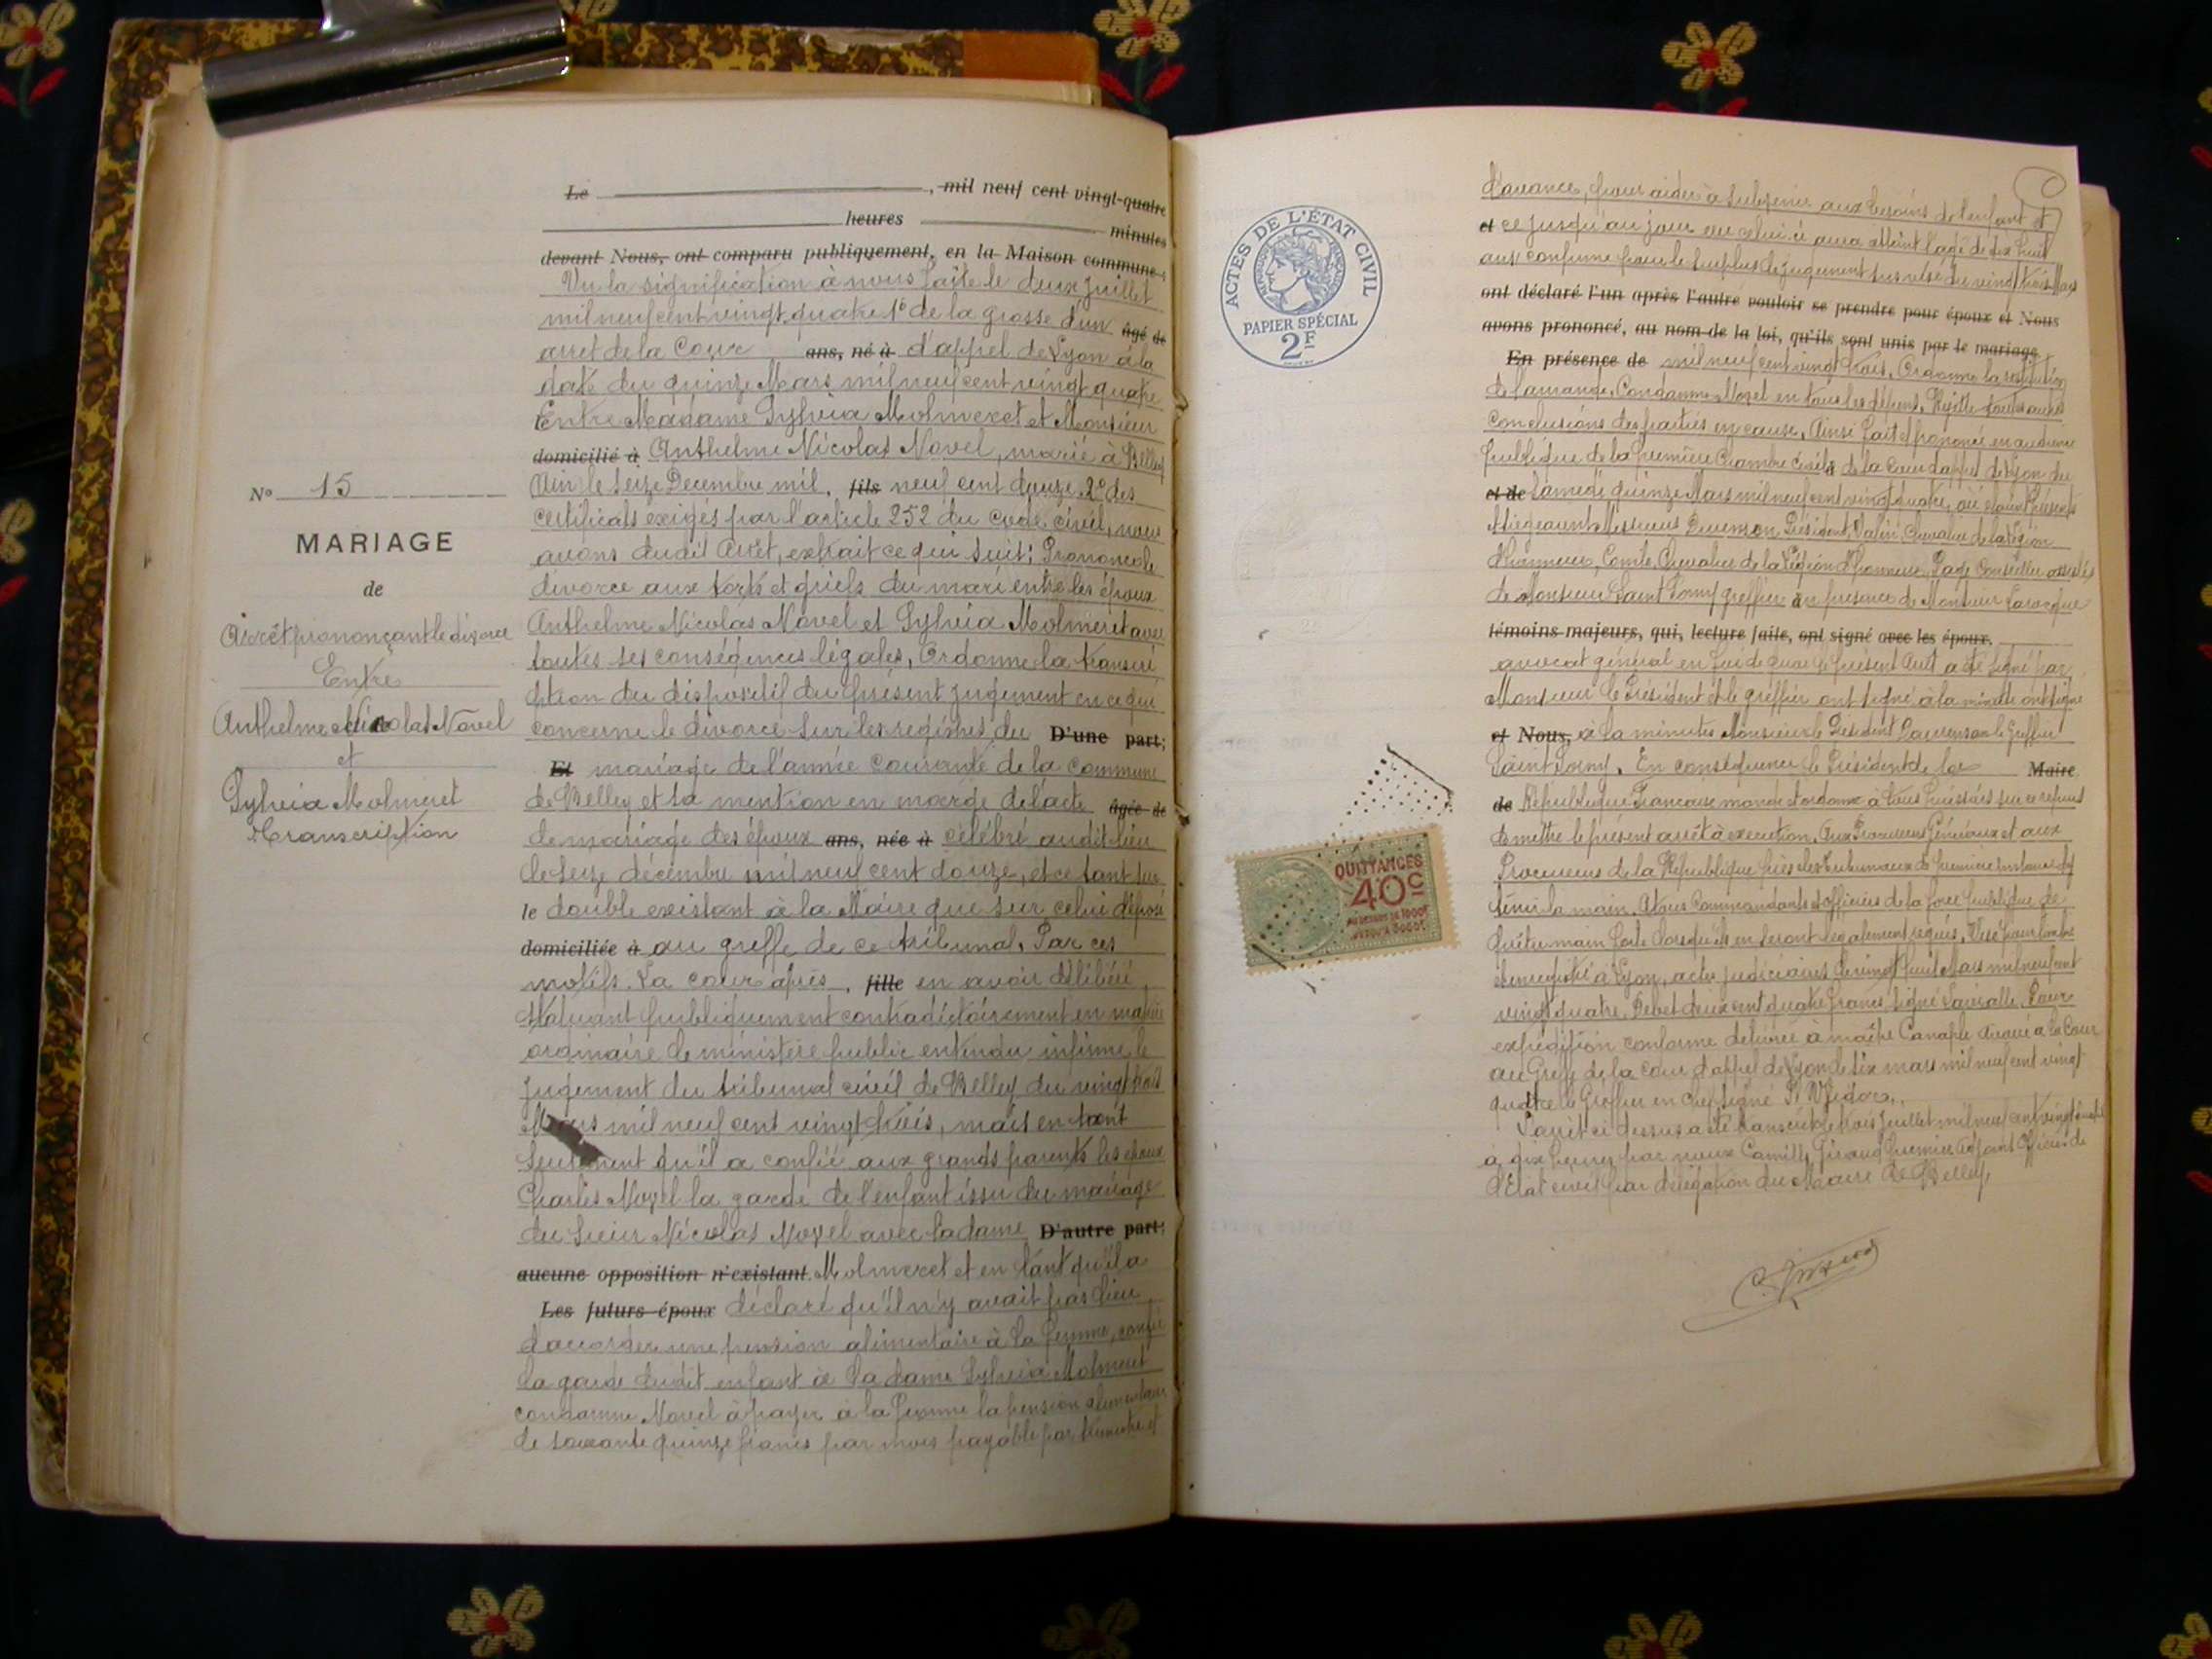 Le , mil neuf cent vingt-quatre
heures minutes
devant Nous, ont comparu publiquement, en la Maison commune :
Vu la signification à nous faite le deux Juillet
mil neuf cent vingt quatre 1° de la grosse d'un âgé de
arret de la Cour ans, né à d'appel de Lyon à la
date du quinze Mars mil neuf cent vingt quatre
Entre Madame Sylvia Molmeret et Monsieur
domicilié à Anthelme Nicolas Novel, marié à Belley
Ain le seize Decembre mil, fils neuf cent douze, 2° des
certificats exigés par l'article 252 du code civil, nous
avons dudit Arrêt, extrait ce qui suit: Prononce le
divorce aux torts et griefs du mari entre les époux
Anthelme Nicolas Novel et Sylvia Molmeret avec
toutes ses conséquences légales, Ordonne la transcri
ption du dispositif du présent jugement en ce qui
concerne le divorce sur les registres du D'une part;
Et mariage de l'année courante de la commune
de Belley et sa mention en marge de l'acte âgée de
de mariage des époux ans, née à célébré audit lieu
le seize décembre mil neuf cent douze, et ce tant sur
le double existant à la Mairie que sur celui déposé
domiciliée à au greffe de ce tribunal. Par ces
motifs. La cour après, fille en avoir délibéré,
statuant publiquement contradictoirement en matière
ordinaire le ministère public entendu infirme le
jugement du tribunal civil de Belley du vingt trois
Mars mil neuf cent vingt trois, mais en tant
seulement qu'il a confié aux grands parents les époux
Charles Novel la garde de l'enfant issu du mariage
du sieur Nicolas Novel avec la dame D'autre part;
aucune opposition n'existant. Molmeret et en tant qu'il a
Les futurs époux déclaré qu'il n'y avait pas lieu
d'accorder une pension alimentaire à la femme, confie
la garde dudit enfant à la dame Sylvia Molmeret
condamne Novel à payer à la femme la pension alimentaire
de soixante quinze francs par mois payable par trimestre et
N° 15
MARIAGE
de
Arrêt prononçant le divorce
Entre
Anthelme Nicolas Novel
et
Sylvia Molmeret
Transcription
ACTES DE L'ÉTAT CIVIL
PAPIER SPÉCIAL
2F
QUITTANCES
40c
d'avance, pour aider à subvenir aux besoins de l'enfant
et ce jusqu'au jour ou celui-ci aura atteint l'age de dix huit
ans confirme pour le surplus le jugement sus visé du vingt trois Mars
ont déclaré l'un après l'autre vouloir se prendre pour époux et Nous
avons prononcé, au nom de la loi, qu'ils sont unis par le mariage
En présence de mil neuf cent vingt trois. Ordonne la restitution
de l'amende. Condamne Novel en tous les dépens. Rejette toutes autres
conclusions des parties en cause. Ainsi fait et prononcé en audience
publique de la première Chambre civile de la Cour d'appel de Lyon du
et de samedi quinze Mars mil neuf cent vingt quatre, où étaient présents
et siégeaient Messieurs Président, Chevalier de la Légion
d'honneur, Comte, Chevalier de la Légion d'honneur, Page Conseiller assistés
de Monsieur Saint Jorny greffier en présence de Monsieur Larocque
témoins majeurs, qui, lecture faite, ont signé avec les époux.
avocat général en foi de quoi le présent Arrêt a été signé par
Monsieur le Président et le greffier ont signé à la minute ont signé
et Nous, à la minutes Monsieur le Président le Greffier
Saint Jorny. En conséquence le Président de la Maire
de République Française mande et ordonne à tous huissiers sur ce requis
de mettre le présent arrêt à execution, Aux Procureurs Généraux et aux
Procureurs de la République près les Tribunaux de Première Instance d'y
tenir la main. A tous Commandants et officiers de la force publique de
prêter main forte lorsqu'ils en seront légalement requis. Visé pour timbre
et enregistré à Lyon, actes judiciaires le vingt huit Mars mil neuf cent
vingt quatre. Debet deux cent quatre francs, signé Pour
expédition conforme délivrée à maître Canaple avoué à la Cour
au Greffe de la Cour d'appel de Lyon le six mars mil neuf cent vingt
quatre le Greffier en chef signé
L'arrêt ci dessus a été transcrit le trois Juillet mil neuf cent vingt quatre
à dix heures par nous Camille Giraud premier adjoint Officier de
l'Etat civil par délégation du Maire de Belley,
C. Giraud